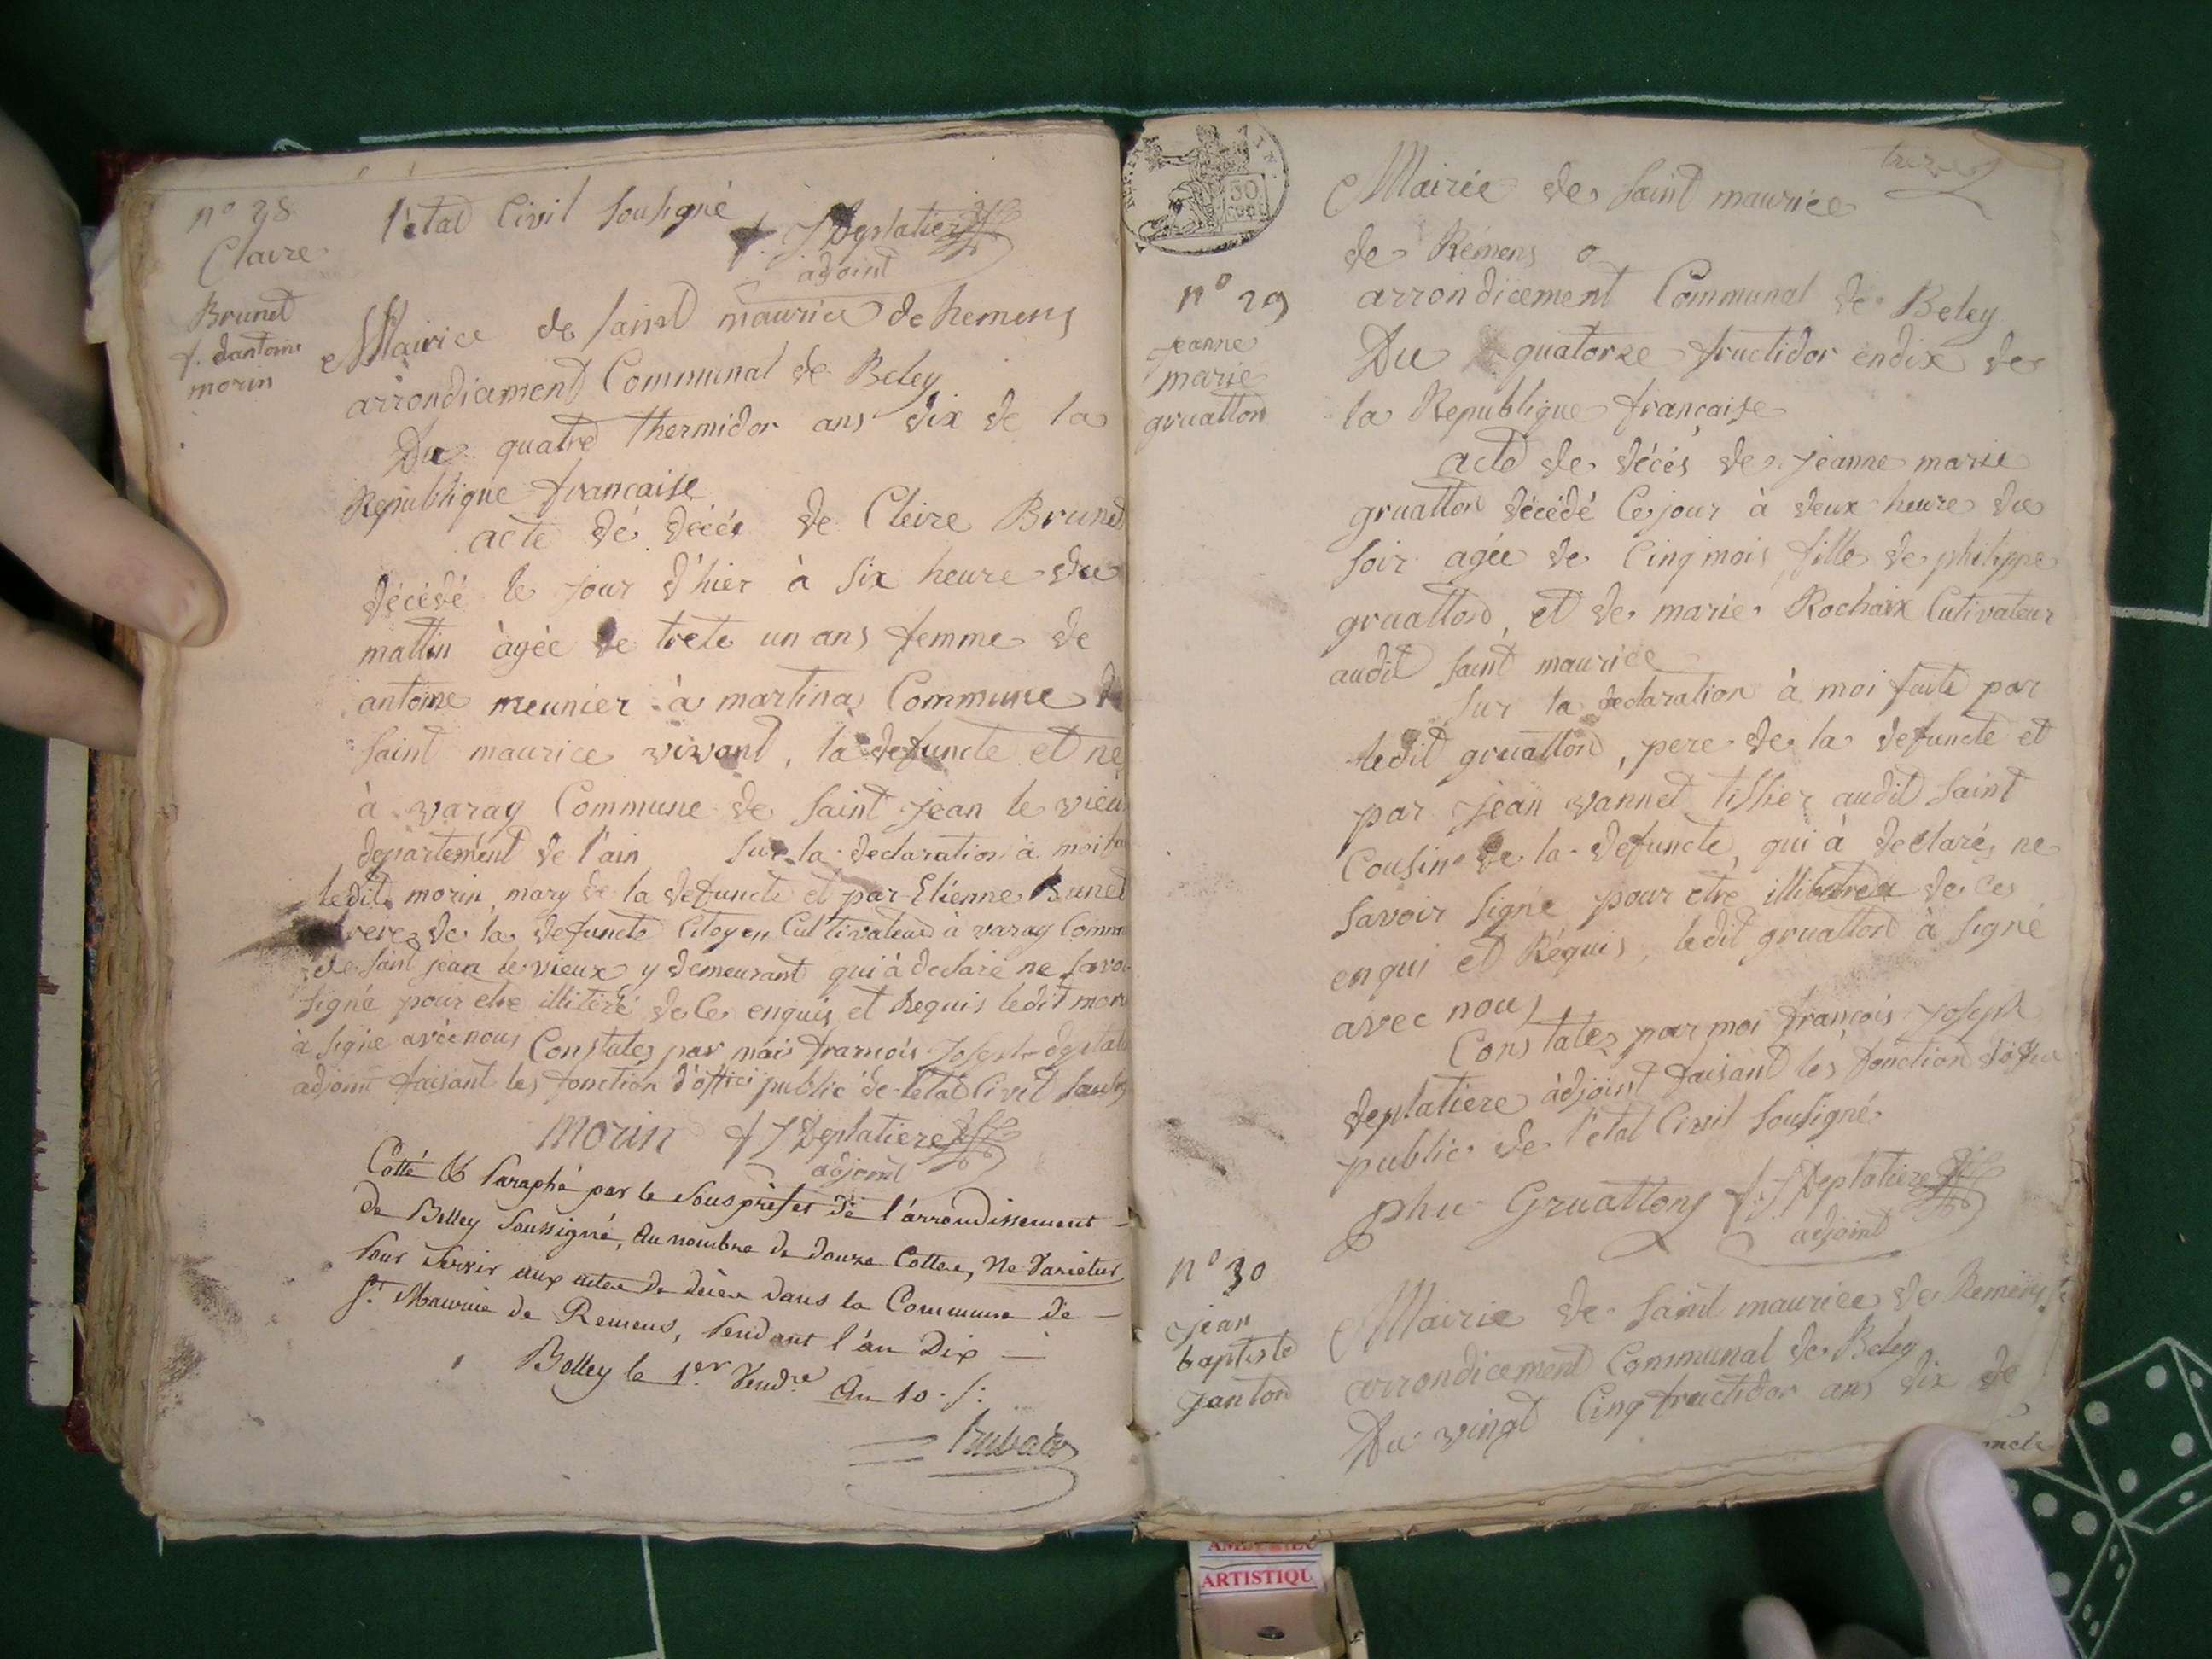 n° 28
Claire
Brunet
f. dantoine
morin
l'état Civil Sousigné
f. J Deplatiere
adjoint
Mairice de saint maurice de hemens
arrondicement Communal de Beley
Du quatre thermidor ans dix de la
Republique française
acte dé décés de Cleire Brunet
décédé le jour d'hier à six heure du
mattin àgée de trete un ans femme de
antoine meunier à martinas Commune de
saint maurice vivant, la defuncte et ne
à varay Commune de saint jean le vieu
departement de l'ain sur la declaration à moi
ledit morin, mary de la defuncte et par Etienne Brunet
frere de la defuncte Citoyen Cultivateur à varay Comm
de saint jean le vieux y demeurant qui à declaré ne savo
signé pour etre illitéré de ce enquis et Requis ledit mori
à signé avec nous Constates par mois francois Joseph deplati
adjoint faisant les fonction d'offici public de letat Civil sous
morin f J Deplatiere
adjoint
Cotté & Paraphé par le Sous préfet de l'arrondissement
de Belley Soussigné, Au nombre de douze Cottes, Ne Varietur
Pour Servir aux actes de décès dans la Commune de
St. Maurice de Remens, Pendant l'an Dix
Belley le 1er Vend.re An 10 ./.
30
CENT
treize
Mairie de saint maurice
de Rémens
n° 29
jeanne
marie
gruatton
arrondicement Communal de Beley
Du quatorze fructidor endix de
la Republique française
acte de décés de jeanne marie
gruatton décédé Cejour à deux heure du
soir agée de Cinq mois, fille de philippe
gruatton, et de marie Rochaix Cutivateur
audit saint maurice
sur la declaration à moi faite par
ledit gruatton, pere de la defuncte et
par jean vannet tissier audit saint
Cousin de la defuncte, qui à declaré ne
savoir signé pour etre de ces
enquis et Réquis, ledit gruatton à signé
avec nous
Constates par moi françois joseph
deplatiere àdjoint faisant les fonction
public de l'etat Civil Sousigné
phu Gruattons f. J Deplatiere
adjoint
n° 30
jean
baptiste
janton
Mairie de saint maurice de Remens
arrondicement Communal de Beley
Du vingt Cinq fructidor ans dix de
ARTISTIQU